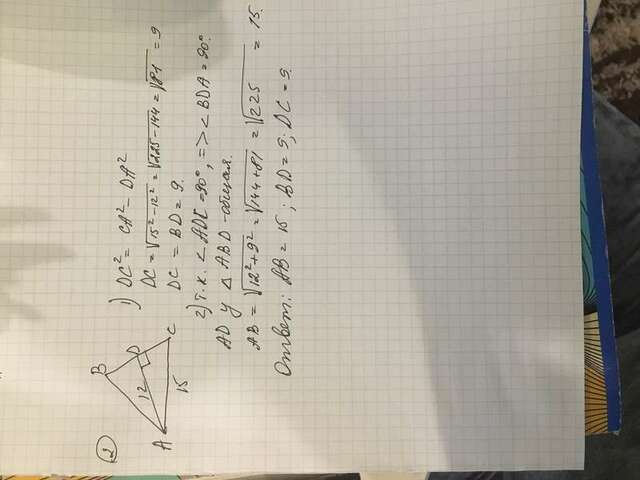 2
B
12
D
A
C
15
1) DC² = CA² - DA²
DC = √15² - 12² = √225 - 144 = √81 = 9
DC = BD = 9.
2) т.к. ∠ ADC = 90°, => ∠ BDA = 90°.
AD у △ ABD - общая.
AB = √12² + 9² = √144 + 81 = √225 = 15.
Ответ: AB = 15 ; BD = 9; DC = 9.